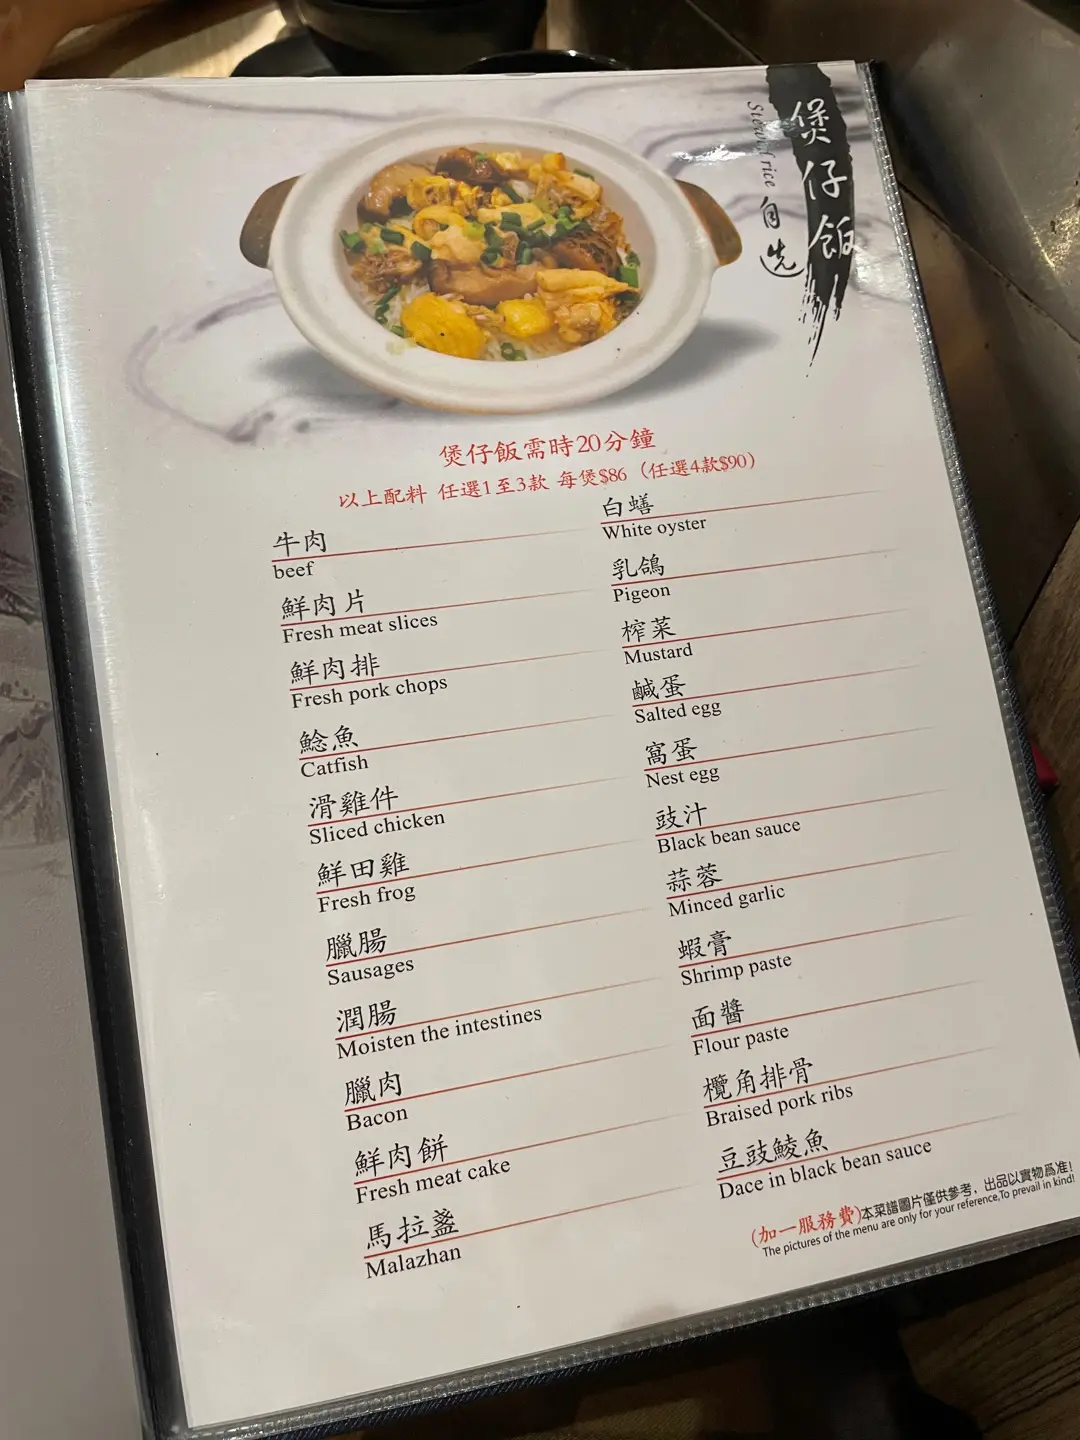 煲仔飯
自选
Stewed rice
煲仔飯需時20分鐘
以上配料 任選1至3款 每煲$86 (任選4款$90)
牛肉
beef
鮮肉片
Fresh meat slices
鮮肉排
Fresh pork chops
鯰魚
Catfish
滑雞件
Sliced chicken
鮮田雞
Fresh frog
臘腸
Sausages
潤腸
Moisten the intestines
臘肉
Bacon
鮮肉餅
Fresh meat cake
馬拉盞
Malazhan
白蟮
White oyster
乳鴿
Pigeon
榨菜
Mustard
鹹蛋
Salted egg
窩蛋
Nest egg
豉汁
Black bean sauce
蒜蓉
Minced garlic
蝦膏
Shrimp paste
面醬
Flour paste
欖角排骨
Braised pork ribs
豆豉鯪魚
Dace in black bean sauce
(加一服務費)本菜譜圖片僅供參考，出品以實物爲准!
The pictures of the menu are only for your reference,To prevail in kind!